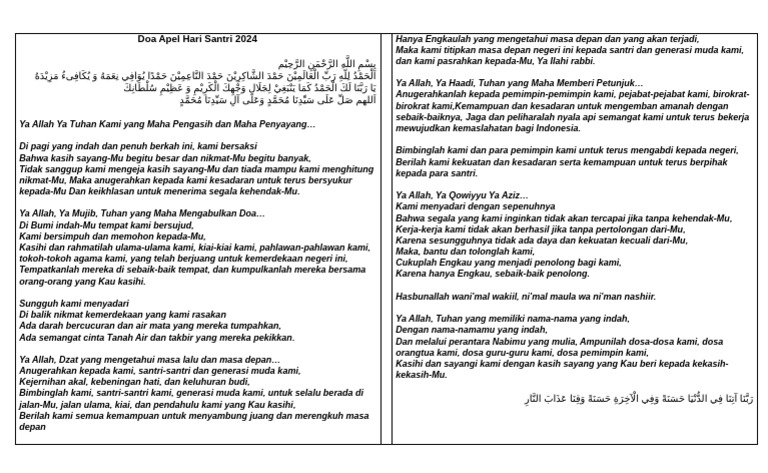 Doa Apel Hari Santri 2024
بِسْمِ اللَّهِ الرَّحْمَنِ الرَّحِيْمِ
اَلْحَمْدُ لِلَّهِ رَبِّ الْعَالَمِيْنَ حَمْدَ الشَّاكِرِيْنَ حَمْدَ النَّاعِمِيْنَ حَمْدًا يُوَافِي نِعَمَهُ وَ يُكَافِيءُ مَزِيْدَهُ
يَا رَبَّنَا لَكَ الْحَمْدُ كَمَا يَنْبَغِيْ لِجَلَالِ وَجْهِكَ الْكَرِيْمِ وَ عَظِيْمِ سُلْطَانِكَ
اَللهم صَلِّ عَلَى سَيِّدِنَا مُحَمَّدٍ وَعَلَى آلِ سَيِّدِنَا مُحَمَّدٍ
Ya Allah Ya Tuhan Kami yang Maha Pengasih dan Maha Penyayang…
Di pagi yang indah dan penuh berkah ini, kami bersaksi
Bahwa kasih sayang-Mu begitu besar dan nikmat-Mu begitu banyak,
Tidak sanggup kami mengeja kasih sayang-Mu dan tiada mampu kami menghitung
nikmat-Mu, Maka anugerahkan kepada kami kesadaran untuk terus bersyukur
kepada-Mu Dan keikhlasan untuk menerima segala kehendak-Mu.
Ya Allah, Ya Mujib, Tuhan yang Maha Mengabulkan Doa…
Di Bumi indah-Mu tempat kami bersujud,
Kami bersimpuh dan memohon kepada-Mu,
Kasihi dan rahmatilah ulama-ulama kami, kiai-kiai kami, pahlawan-pahlawan kami,
tokoh-tokoh agama kami, yang telah berjuang untuk kemerdekaan negeri ini,
Tempatkanlah mereka di sebaik-baik tempat, dan kumpulkanlah mereka bersama
orang-orang yang Kau kasihi.
Sungguh kami menyadari
Di balik nikmat kemerdekaan yang kami rasakan
Ada darah bercucuran dan air mata yang mereka tumpahkan,
Ada semangat cinta Tanah Air dan takbir yang mereka pekikkan.
Ya Allah, Dzat yang mengetahui masa lalu dan masa depan…
Anugerahkan kepada kami, santri-santri dan generasi muda kami,
Kejernihan akal, kebeningan hati, dan keluhuran budi,
Bimbinglah kami, santri-santri kami, generasi muda kami, untuk selalu berada di
jalan-Mu, jalan ulama, kiai, dan pendahulu kami yang Kau kasihi,
Berilah kami semua kemampuan untuk menyambung juang dan merengkuh masa
depan
Hanya Engkaulah yang mengetahui masa depan dan yang akan terjadi,
Maka kami titipkan masa depan negeri ini kepada santri dan generasi muda kami,
dan kami pasrahkan kepada-Mu, Ya Ilahi rabbi.
Ya Allah, Ya Haadi, Tuhan yang Maha Memberi Petunjuk…
Anugerahkanlah kepada pemimpin-pemimpin kami, pejabat-pejabat kami, birokrat-
birokrat kami,Kemampuan dan kesadaran untuk mengemban amanah dengan
sebaik-baiknya, Jaga dan peliharalah nyala api semangat kami untuk terus bekerja
mewujudkan kemaslahatan bagi Indonesia.
Bimbinglah kami dan para pemimpin kami untuk terus mengabdi kepada negeri,
Berilah kami kekuatan dan kesadaran serta kemampuan untuk terus berpihak
kepada para santri.
Ya Allah, Ya Qowiyyu Ya Aziz…
Kami menyadari dengan sepenuhnya
Bahwa segala yang kami inginkan tidak akan tercapai jika tanpa kehendak-Mu,
Kerja-kerja kami tidak akan berhasil jika tanpa pertolongan dari-Mu,
Karena sesungguhnya tidak ada daya dan kekuatan kecuali dari-Mu,
Maka, bantu dan tolonglah kami,
Cukuplah Engkau yang menjadi penolong bagi kami,
Karena hanya Engkau, sebaik-baik penolong.
Hasbunallah wani'mal wakiil, ni'mal maula wa ni'man nashiir.
Ya Allah, Tuhan yang memiliki nama-nama yang indah,
Dengan nama-namamu yang indah,
Dan melalui perantara Nabimu yang mulia, Ampunilah dosa-dosa kami, dosa
orangtua kami, dosa guru-guru kami, dosa pemimpin kami,
Kasihi dan sayangi kami dengan kasih sayang yang Kau beri kepada kekasih-
kekasih-Mu.
رَبَّنَا آتِنَا فِي الدُّنْيَا حَسَنَةً وَفِي الْآخِرَةِ حَسَنَةً وَقِنَا عَذَابَ النَّارِ